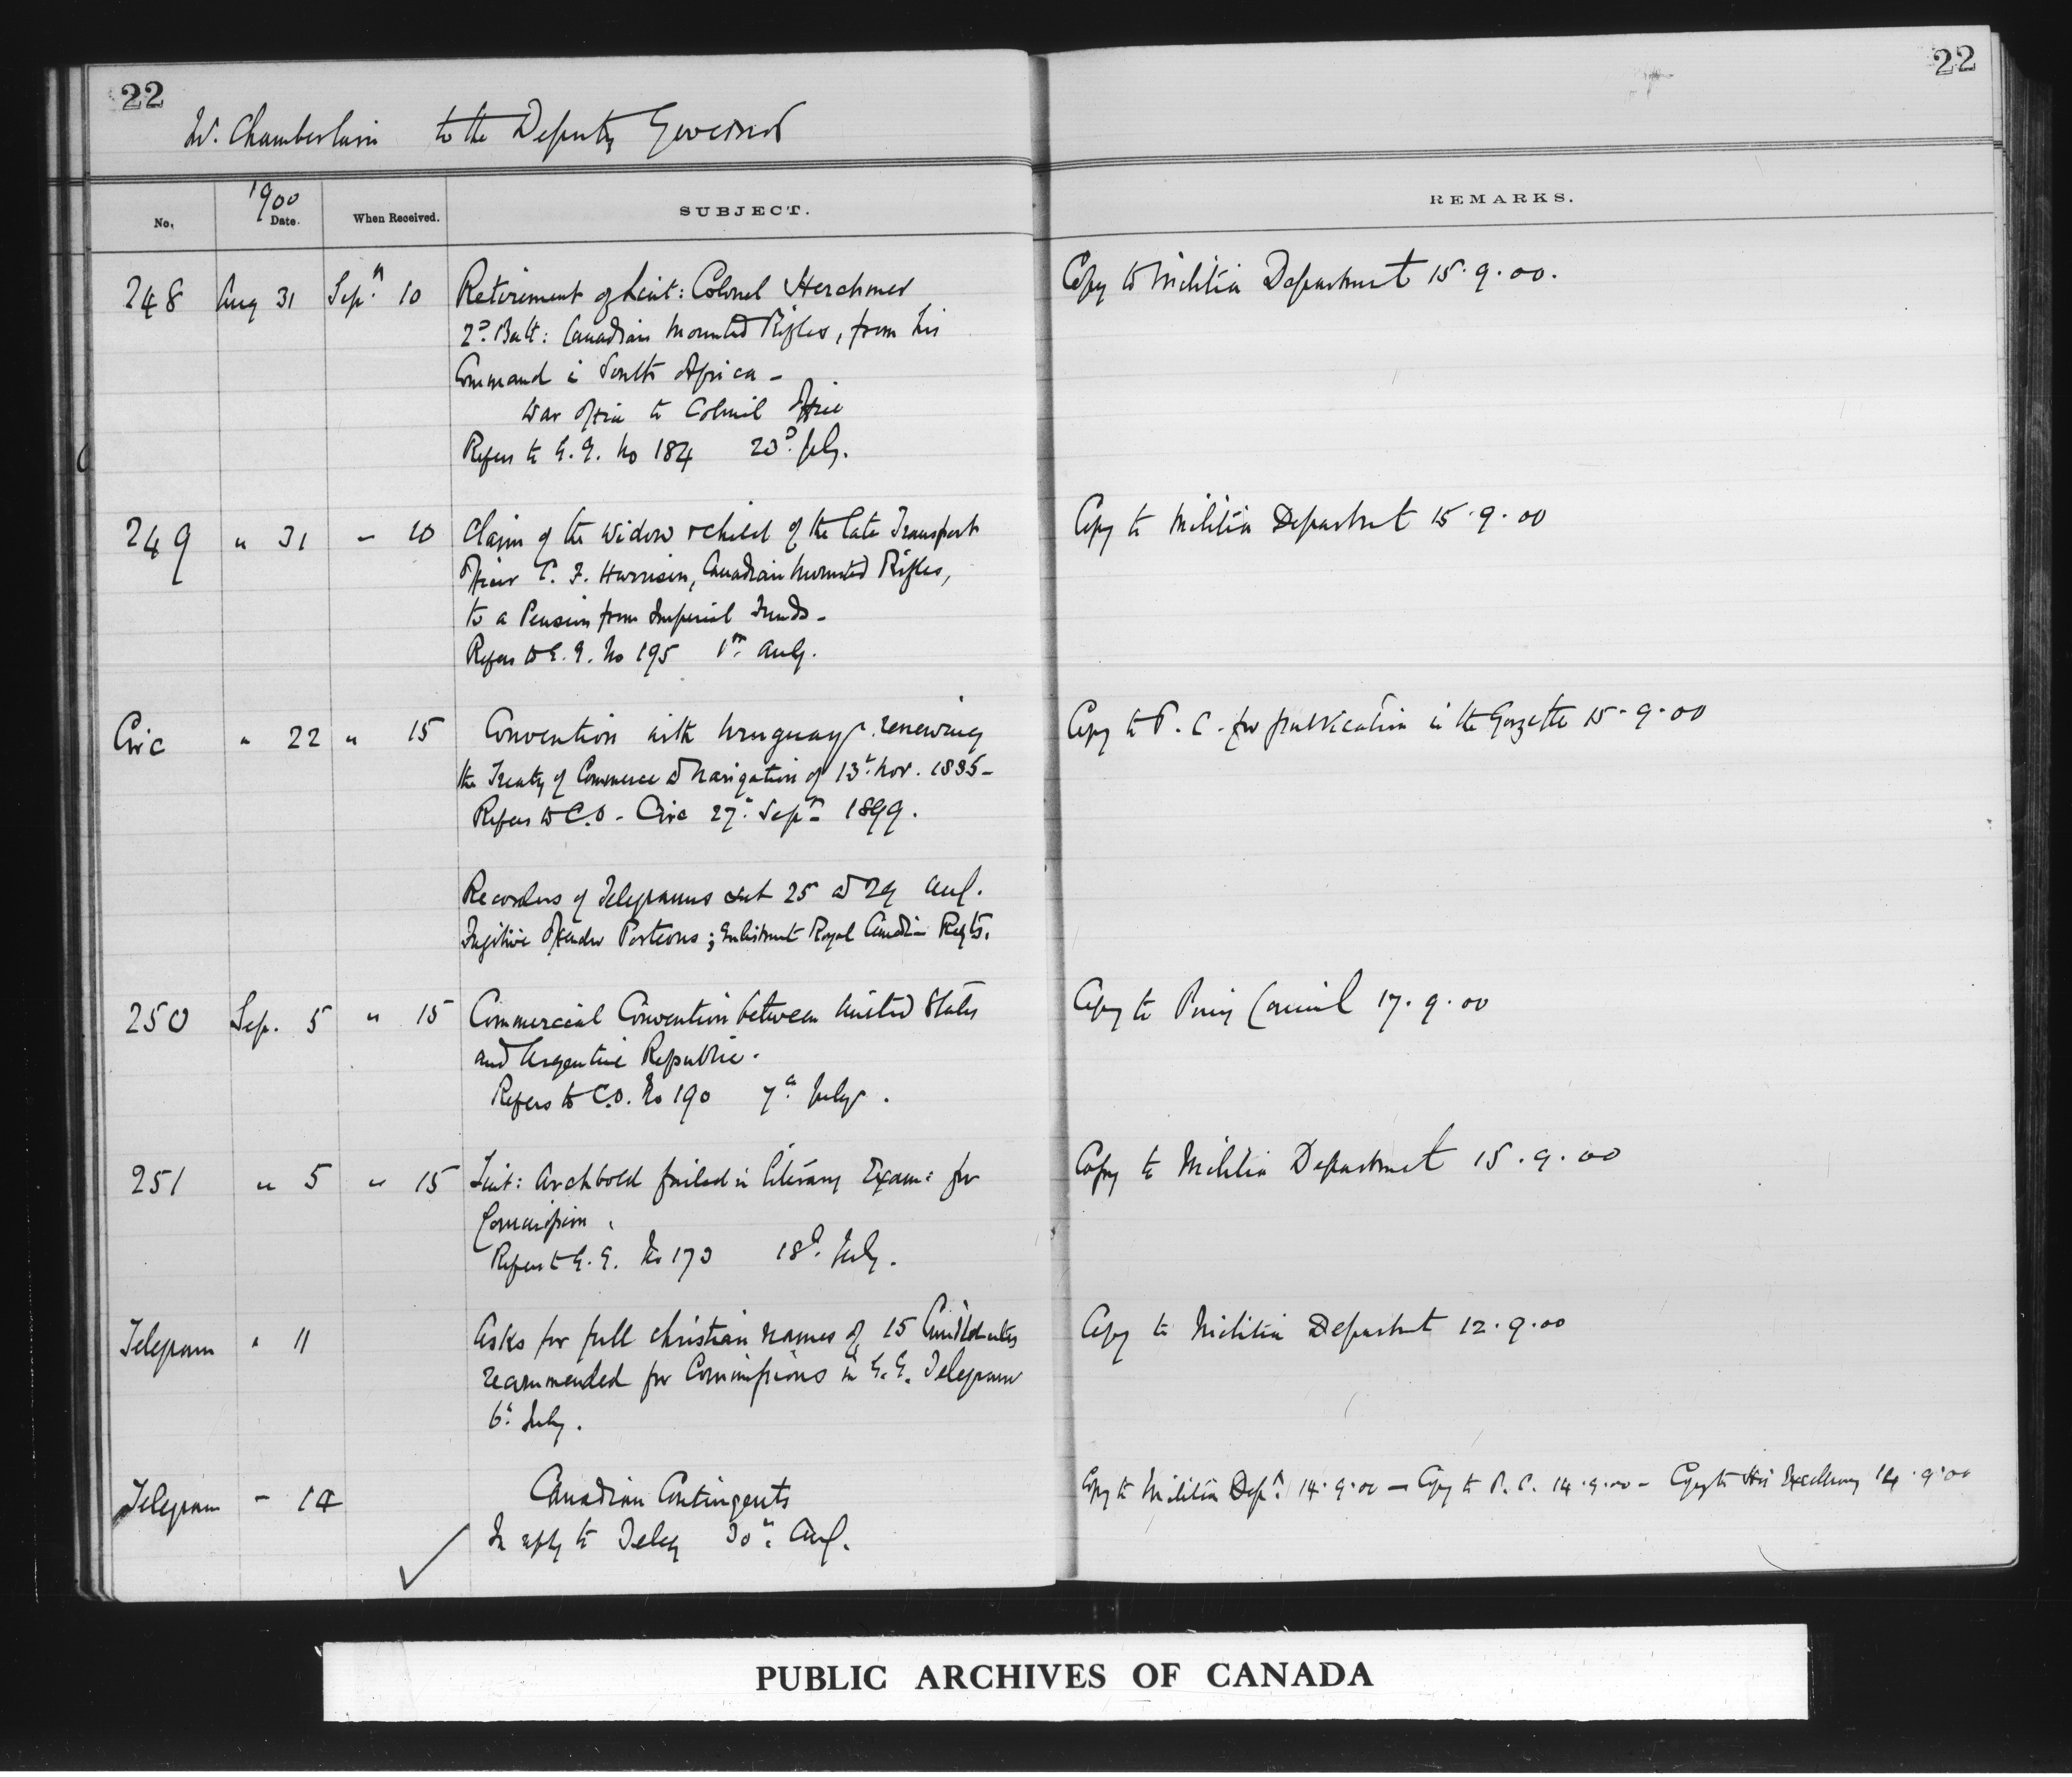 22
22
Mr. Chamberlain to the Deputy Governor
No.
1900
Date.
When Received.
SUBJECT.
REMARKS.
248 Aug 31 Sepr. 10 Retirement of Lieut: Colonel Herchmer
2d. Batt: Canadian Mounted Rifles, from his
Command in South Africa –
War Office to Colonial Office
Refers to G.G. No 184 23d. July.
Copy to Militia Department 15.9.00.
249 " 31 – 10 Claim of the widow & child of the late Transport
Officer C. F. Harrison, Canadian Mounted Rifles,
to a Pension from Imperial Funds –
Refers to G.G. No 195 1st. Aug.
Copy to Militia Department 15.9.00
Circ " 22 " 15 Convention with Uruguay renewing
the Treaty of Commerce & Navigation of 13th. Nov. 1885 –
Refers to C.O – Circ 27th. Sept. 1899.
Copy to P.C. for publication in the Gazette 15.9.00
Recorders of Telegrams sent 25 & 29 Aug.
Fugitive Offender Porteous; Enlistment Royal Canadian Regts.
250 Sep. 5 " 15 Commercial Convention between United States
and Argentine Republic.
Refers to C.O. No 190 7th. July.
Copy to Privy Council 17.9.00
251 " 5 " 15 Lieut: Archbold failed in literary Exam: for
Commission.
Refers to G.G. No 173 18th. July.
Copy to Militia Department 15.9.00
Telegram " 11 Asks for full christian names of 15 Candidates
recommended for Commissions in G.G. Telegram
6th. July.
Copy to Militia Department 12.9.00
Telegram – 14 Canadian Contingents
In reply to Teleg 30th. Aug.
Copy to Militia Dept. 14.9.00 – Copy to P.C. 14.9.00 – Copy to His Excellency 14.9.00
PUBLIC ARCHIVES OF CANADA